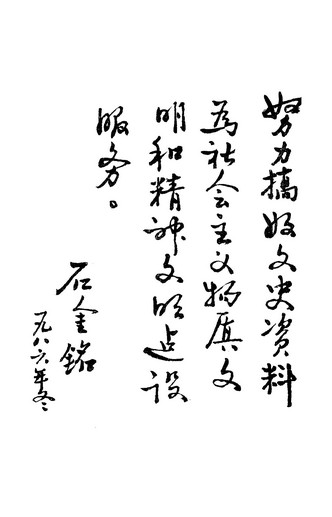 努力搞好文史资料
为社会主义物质文
明和精神文明建设
服务。
石金铭
一九八六年冬